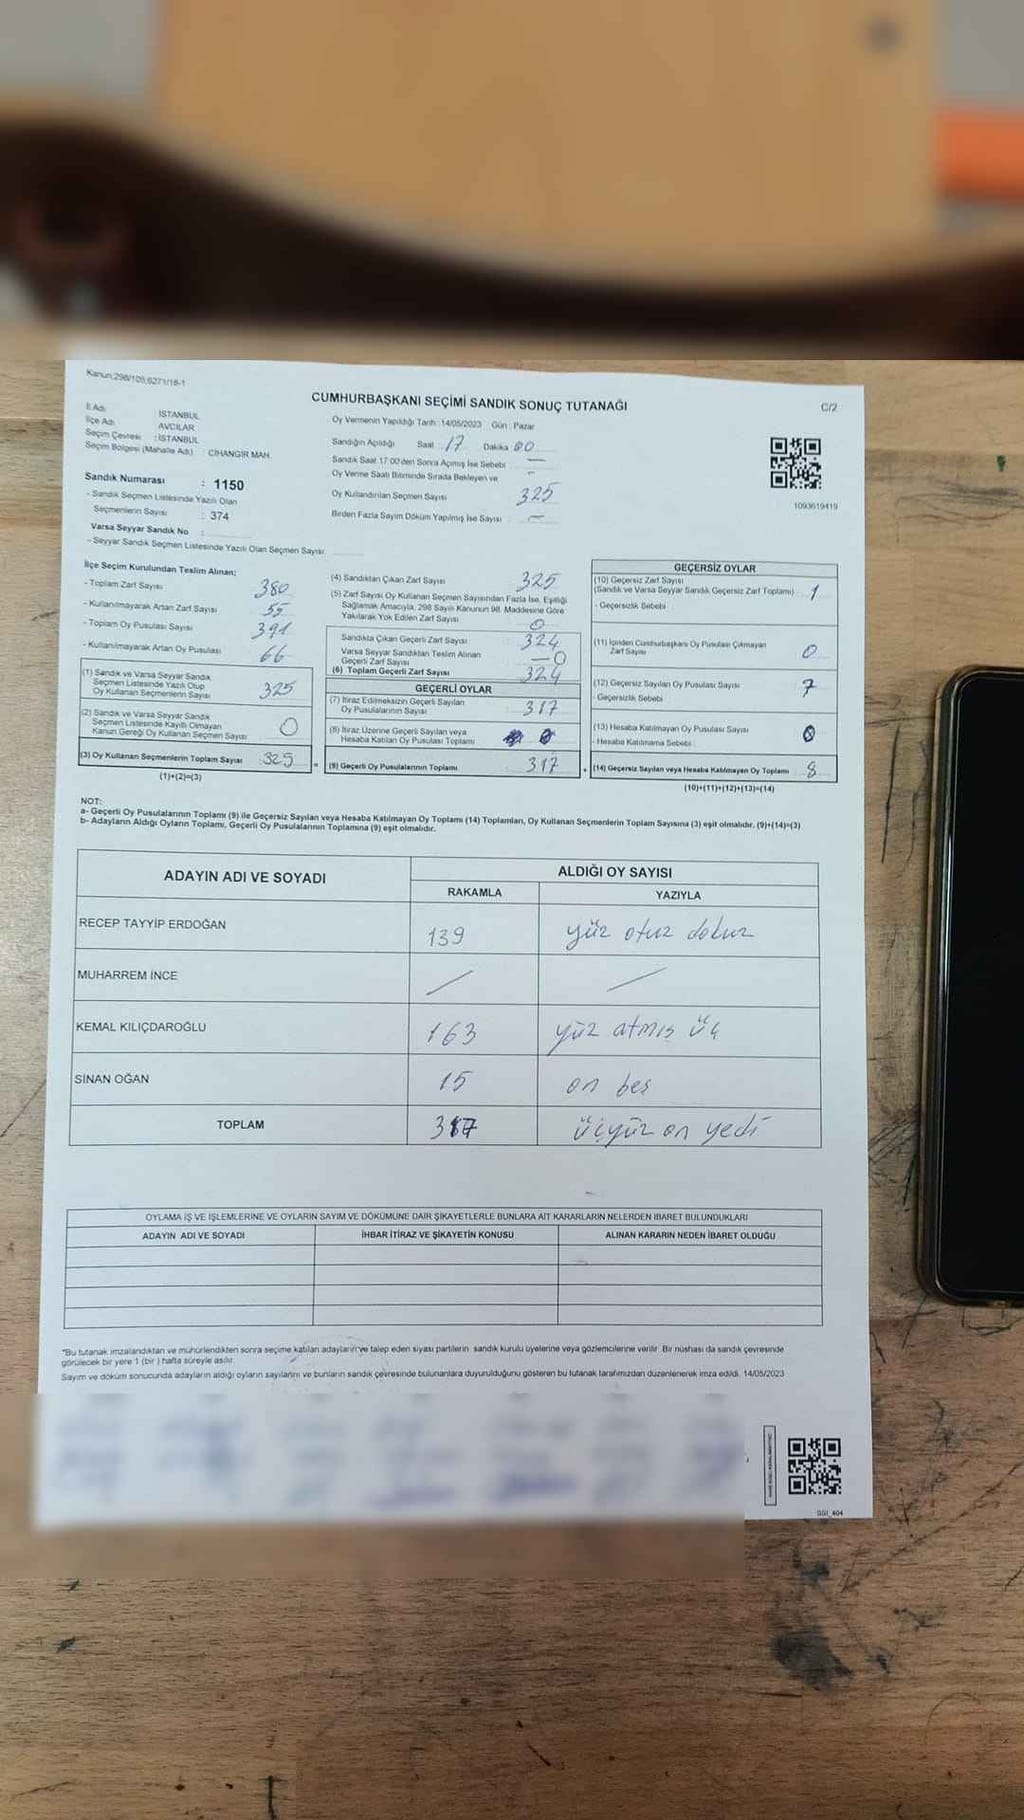 Kanun:298/105,6271/18-1
CUMHURBAŞKANI SEÇİMİ SANDIK SONUÇ TUTANAĞI
C/2
İl Adı : İSTANBUL
İlçe Adı : AVCILAR
Seçim Çevresi : İSTANBUL
Seçim Bölgesi (Mahalle Adı) : CİHANGİR MAH.
Sandık Numarası : 1150
- Sandık Seçmen Listesinde Yazılı Olan
Seçmenlerin Sayısı : 374
Varsa Seyyar Sandık No :
- Seyyar Sandık Seçmen Listesinde Yazılı Olan Seçmen Sayısı:
Oy Vermenin Yapıldığı Tarih :14/05/2023 Gün : Pazar
Sandığın Açıldığı Saat 17 Dakika 00
Sandık Saat 17:00'den Sonra Açmış İse Sebebi : —
Oy Verme Saati Bitiminde Sırada Bekleyen ve
Oy Kullandırılan Seçmen Sayısı 325
Birden Fazla Sayım Döküm Yapılmış İse Sayısı : —
1093619419
İlçe Seçim Kurulundan Teslim Alınan;
- Toplam Zarf Sayısı 380
- Kullanılmayarak Artan Zarf Sayısı 55
- Toplam Oy Pusulası Sayısı 391
- Kullanılmayarak Artan Oy Pusulası 66
(1) Sandık ve Varsa Seyyar Sandık
Seçmen Listesinde Yazılı Olup
Oy Kullanan Seçmenlerin Sayısı 325
(2) Sandık ve Varsa Seyyar Sandık
Seçmen Listesinde Kayıtlı Olmayan
Kanun Gereği Oy Kullanan Seçmen Sayısı 0
(3) Oy Kullanan Seçmenlerin Toplam Sayısı 325
(1)+(2)=(3)
(4) Sandıktan Çıkan Zarf Sayısı 325
(5) Zarf Sayısı Oy Kullanan Seçmen Sayısından Fazla İse, Eşitliği
Sağlamak Amacıyla, 298 Sayılı Kanunun 98. Maddesine Göre
Yakılarak Yok Edilen Zarf Sayısı 0
Sandıkta Çıkan Geçerli Zarf Sayısı 324
Varsa Seyyar Sandıktan Teslim Alınan
Geçerli Zarf Sayısı —0
(6) Toplam Geçerli Zarf Sayısı 324
GEÇERLİ OYLAR
(7) İtiraz Edilmeksizin Geçerli Sayılan
Oy Pusulalarının Sayısı : 317
(8) İtiraz Üzerine Geçerli Sayılan veya
Hesaba Katılan Oy Pusulası Toplamı 0
(9) Geçerli Oy Pusulalarının Toplamı : 317
GEÇERSİZ OYLAR
(10) Geçersiz Zarf Sayısı
(Sandık ve Varsa Seyyar Sandık Geçersiz Zarf Toplamı) 1
- Geçersizlik Sebebi
(11) İçinden Cumhurbaşkanı Oy Pusulası Çıkmayan
Zarf Sayısı 0
(12) Geçersiz Sayılan Oy Pusulası Sayısı 7
- Geçersizlik Sebebi
(13) Hesaba Katılmayan Oy Pusulası Sayısı 0
- Hesaba Katılmama Sebebi :
(14) Geçersiz Sayılan veya Hesaba Katılmayan Oy Toplamı 8
(10)+(11)+(12)+(13)=(14)
NOT:
a- Geçerli Oy Pusulalarının Toplamı (9) ile Geçersiz Sayılan veya Hesaba Katılmayan Oy Toplamı (14) Toplamları, Oy Kullanan Seçmenlerin Toplam Sayısına (3) eşit olmalıdır. (9)+(14)=(3)
b- Adayların Aldığı Oyların Toplamı, Geçerli Oy Pusulalarının Toplamına (9) eşit olmalıdır.
ADAYIN ADI VE SOYADI
ALDIĞI OY SAYISI
RAKAMLA YAZIYLA
RECEP TAYYİP ERDOĞAN 139 yüz otuz dokuz
MUHARREM İNCE / /
KEMAL KILIÇDAROĞLU 163 yüz atmış üç
SİNAN OĞAN 15 on beş
TOPLAM 317 üçyüz on yedi
OYLAMA İŞ VE İŞLEMLERİNE VE OYLARIN SAYIM VE DÖKÜMÜNE DAİR ŞİKAYETLERLE BUNLARA AİT KARARLARIN NELERDEN İBARET BULUNDUKLARI
ADAYIN ADI VE SOYADI İHBAR İTİRAZ VE ŞİKAYETİN KONUSU ALINAN KARARIN NEDEN İBARET OLDUĞU
"Bu tutanak imzalandıktan ve mühürlendikten sonra seçime katılan adayların ve talep eden siyasi partilerin sandık kurulu üyelerine veya gözlemcilerine verilir. Bir nüshası da sandık çevresinde
görülecek bir yere 1 (bir ) hafta süreyle asılır.
Sayım ve döküm sonucunda adayların aldığı oyların sayılarını ve bunların sandık çevresinde bulunanlara duyurulduğunu gösteren bu tutanak tarafımızdan düzenlenerek imza edildi. 14/05/2023